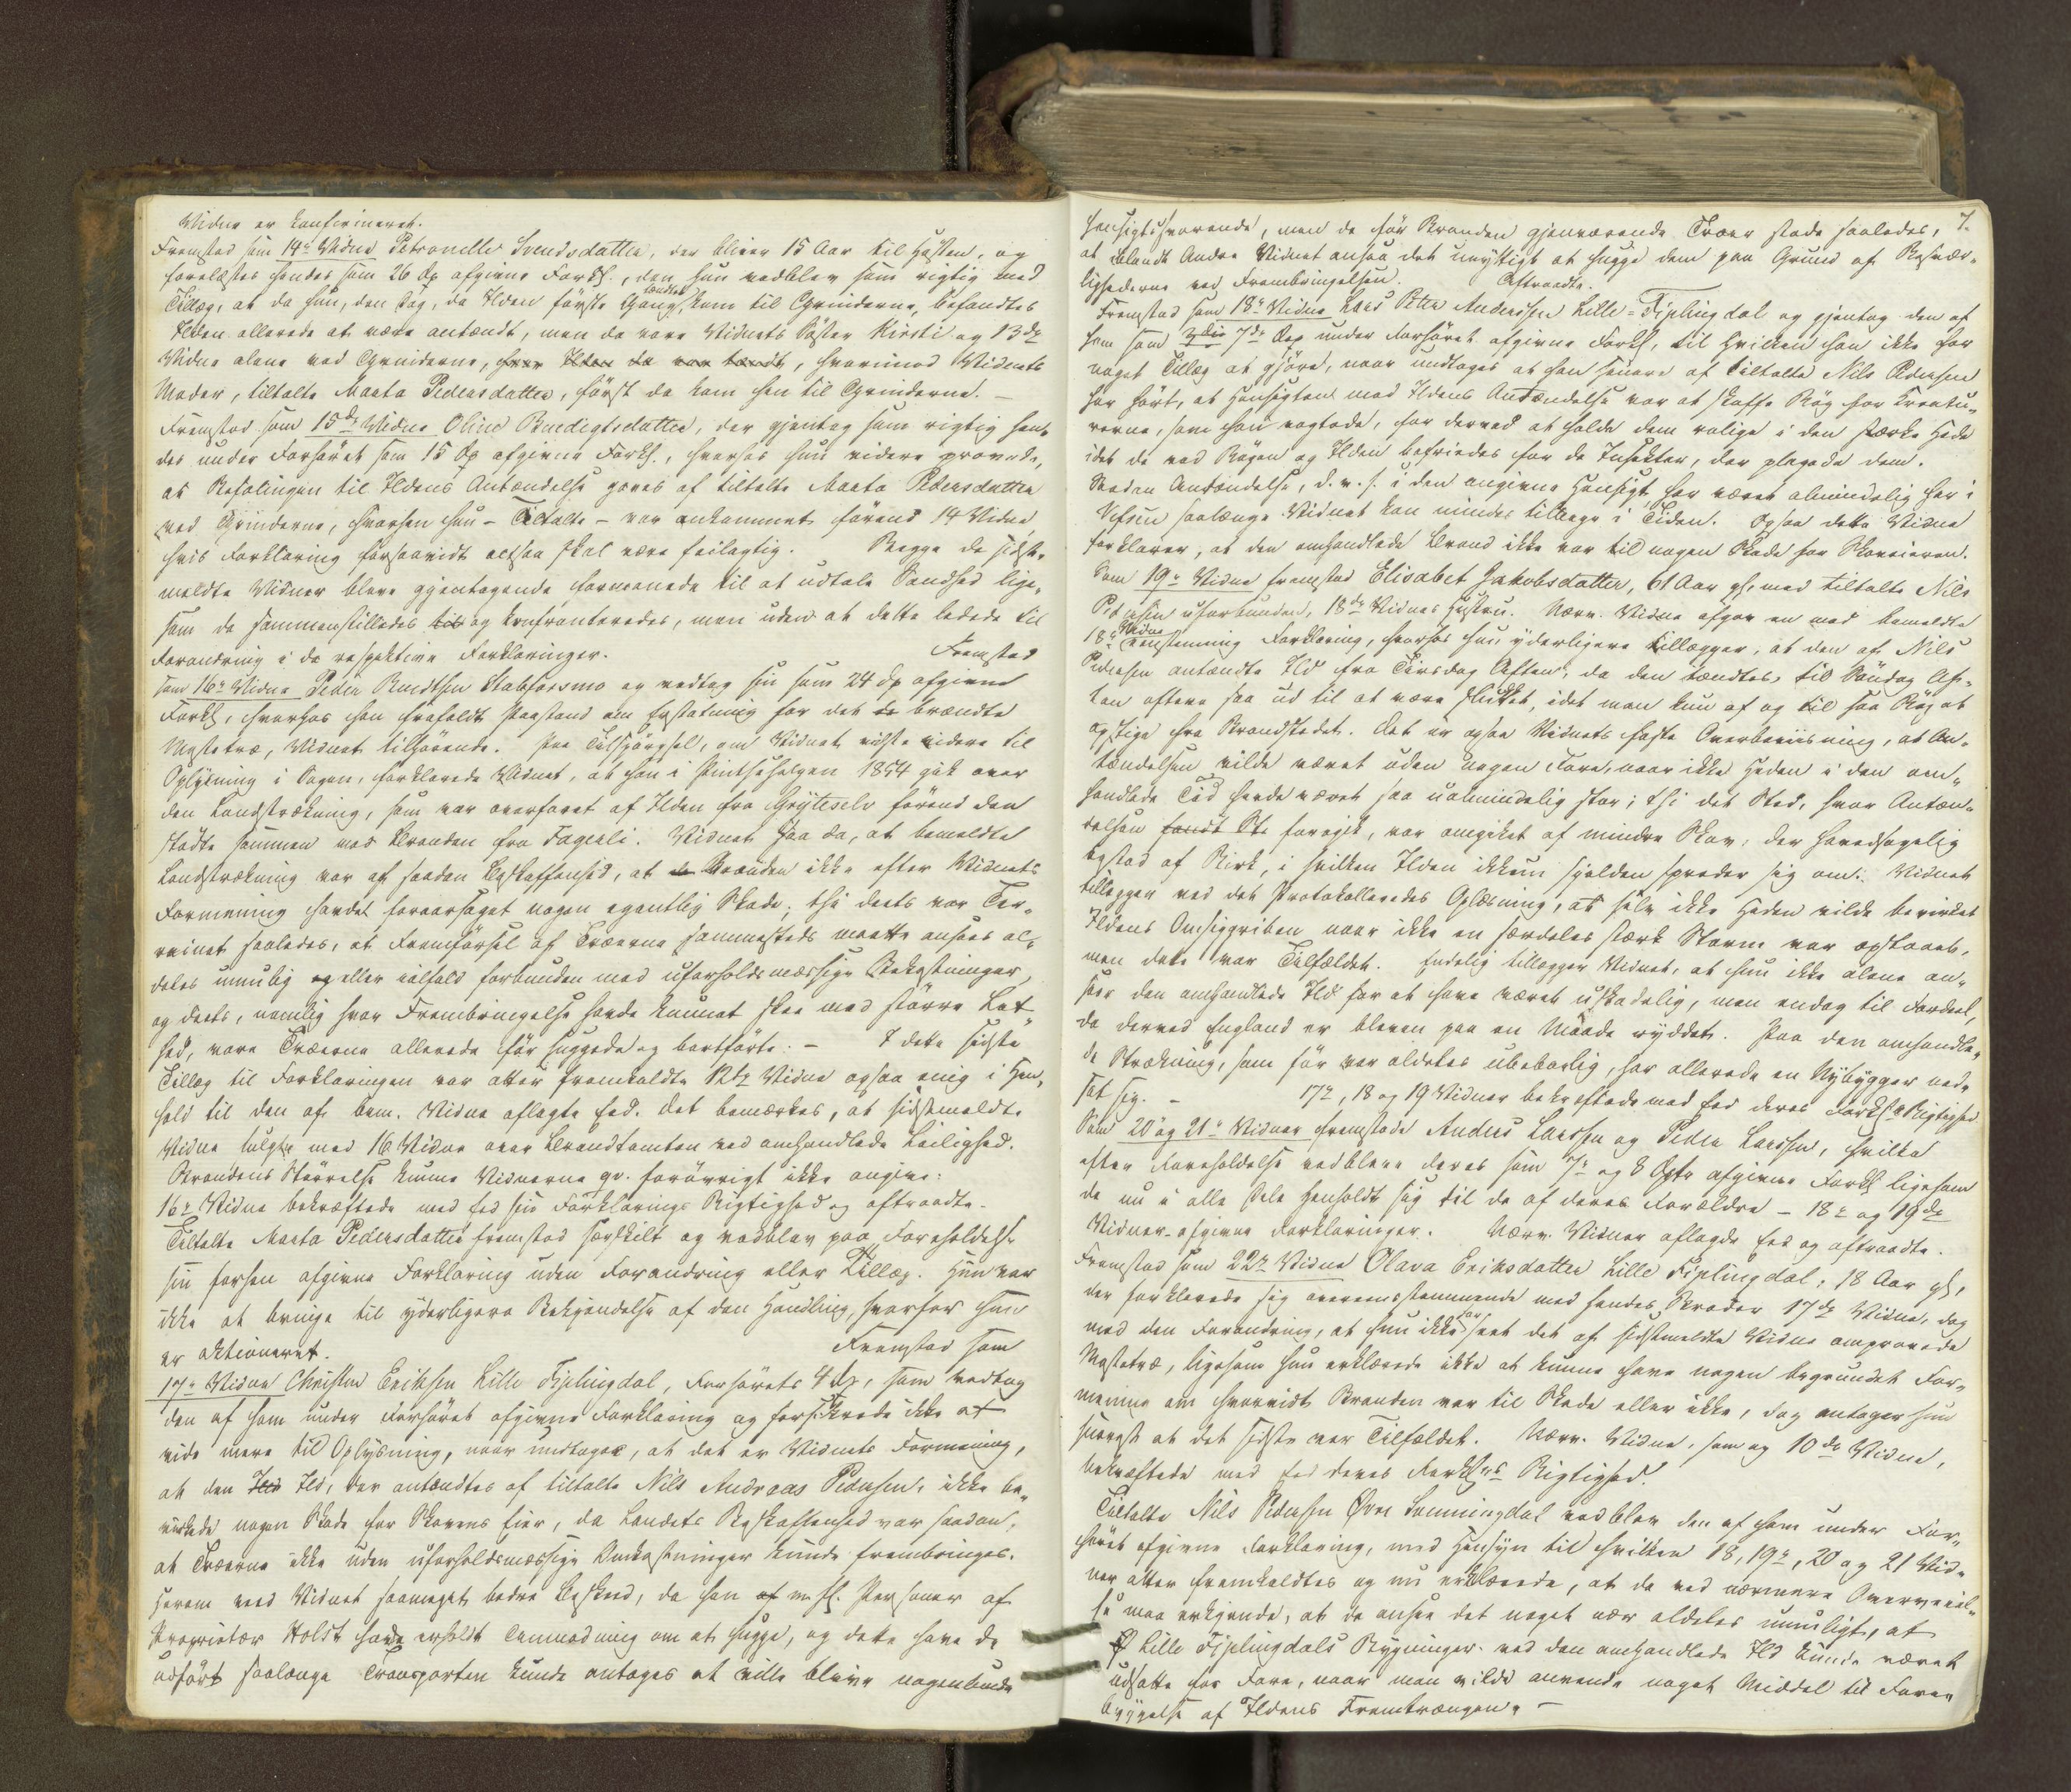 Vidne er konfirmeret.
Fremstod som 14de Vidne Petronelle Svendsdatter, der bliver 15 Aar til Høsten, og
forelæstes hendes som 26 Dp afgivne Forkl., den hun vedblev som rigtig med
Tillæg, at da hun, den Dag, da Ilden første Gang tændtes, kom til Grinderne, befandtes
Ilden allerede at være antændt, men da vare Vidnets Søster Kirsti og 13de
Vidne alene ved Grinderne, hvor Ilden da var tændt, hvorimod Vidnets
Moder, tiltalte Marta Pedersdatter, først da kom hen til Grinderne. –
Fremstod som 15de Vidne Oline Benedigtsdatter, der gjentog som rigtig hen-
des under Forhøret som 15 Dp afgivne Forkl., hvorhos hun videre provede,
at Befalingen til Ildens Antændelse gaves af tiltalte Marta Pedersdatter
ved Grinderne, hvorhen hun – Tiltalte – var ankommet førend 14 Vidne
hvis Forklaring forsaavidt altsaa skal være feilagtig. Begge de sidst-
meldte Vidner bleve gjentagende formanede til at udtale Sandhed lige-
som de sammenstilledes til og konfronteredes, men uden at dette ledede til
Forandring i de respektive Forklaringer. Fremstod
som 16de Vidne Peder Knudtsen Stabforsmo og vedtog sin som 24 Dp afgivne
Forkl, hvorhos han frafaldt Paastand om Erstatning for det de brændte
Mastetræ, Vidnet tilhørende. Paa Tilspørgsel, om Vidnet vidste videre til
Oplysning i Sagen, forklarede Vidnet, at han i Pintsehelgen 1854 gik over
den Landstrækning, som var overfaret af Ilden fra Gryteselv førend den
stødte sammen med Branden fra Fagerli. Vidnet saa da, at bemeldte
Landstrækning var af saadan Beskaffenhed, at de Branden ikke efter Vidnets
Formening havde foraarsaget nogen egentlig Skade; thi deels var Ter-
rainet saaledes, at Fremførsel af Træerne sammesteds maatte ansees al-
deles umulig og eller ialfald forbunden med uforholdsmæssige Bekostninger
og deels, nemlig hvor Frembringelse havde kunnet skee med større Let-
hed, vare Træerne allerede før huggede og bortførte. – I dette sidste
Tillæg til Forklaringen var atter fremkaldte 12te Vidne ogsaa enig i Hen-
hold til den af bem. Vidne aflagte Eed. Det bemærkes, at sidstmeldte
Vidne fulgte med 16 Vidne over Brandtomten ved omhandlede Leilighed.
Brandens Størrelse kunne Vidnerne gr. forøvrigt ikke angive.
16de Vidne bekræftede med Eed sin Forklarings Rigtighed og aftraadte.
Tiltalte Marta Pedersdatter fremstod særskilt og vedblev paa Foreholdelse
sin forhen afgivne Forklaring uden Forandring eller Tillæg. Hun var
ikke at bringe til yderligere Bekjendelse af den Handling, hvorfor hun
er aktioneret. Fremstod som
17de Vidne Christen Eriksen Lille Fiplingdal, Forhørets 4 Dp, som vedtog
den af ham under Forhøret afgivne Forklaring og forsikrede ikke at
vide mere til Oplysning, naar undtages, at det er Vidnets Formening,
at den Ild Ild, der antændtes af tiltalte Nils Andreas Pedersen, ikke be-
virkede nogen Skade for Skovens Eier, da Landets Beskaffenhed var saadan,
at Træerne ikke uden uforholdsmæssige Omkostninger kunde frembringes.
Herom veed Vidnet saameget bedre Besked, da han af m. fl. Personer af
Proprietær Holst have erholdt Anmodning om at hugge, og dette have de
udført saalænge Transporten kunde antages at ville blive nogenlunde
7.
hensigtssvarende, men de før Branden gjenværende Træer stode saaledes,
at blandt Andre Vidnet ansaa det unyttigt at hugge dem paa Grund af Besvær-
lighederne ved Frembringelsen. Aftraadte.
Fremstod som 18de Vidne Lars Peter Anderssen Lille-Fiplingdal og gjentog den af
ham som 7de Dep under Forhøret afgivne Forkl, til hvilken han ikke har
noget Tillæg at gjøre, naar undtages at han senere af tiltalte Nils Pedersen
har hørt, at Hensigten med Ildens Antændelse var at skaffe Røg for Kreatu-
rerne, som han vogtede, for derved at holde dem rolige i den stærke Hede
idet de ved Røgen og Ilden befriedes for de Insekter, der plagede dem.
Saadan Antændelse, d. v. s. i den angivne Hensigt, har været almindelig her i
Vefsen saalænge Vidnet kan mindes tilbage i Tiden. Ogsaa dette Vidne
forklarer, at den omhandlede Brand ikke var til nogen Skade for Skoveieren.
Som 19de Vidne fremstod Elisabet Jakobsdatter, 61 Aar gl, med tiltalte Nils
Pedersen uforbunden, 18de Vidnes Hustru. Nærv. Vidne afgav en med bemeldte
18de Vidne eenstemmig Forklaring, hvorhos hun yderligere tillægger, at den af Nils
Pedersen antændte Ild fra Tirsdag Aften, da den tændtes, til Søndag Af-
ten oftere saa ud til at være slukket, idet man kun af og til saa Røg at
opstige fra Brandstedet. Det er ogsaa Vidnets faste Overbeviisning, at An-
tændelsen vilde været uden nogen Fare, naar ikke Heden i den om-
handlede Tid havde været saa ualmindelig stor; thi det Sted, hvor Antæn-
delsen fandt St. foregik, var omgivet af mindre Skov, der hovedsagelig
bestod af Birk, i hvilken Ilden ikkun sjelden spreder sig om. Vidnet
tillægger ved det Protokolleredes Oplæsning, at selv ikke Heden vilde bevirket
Ildens Omsiggriben naar ikke en særdeles stærk Storm var opstaaet,
men dette var Tilfældet. Endelig tillægger Vidnet, at hun ikke alene an-
seer den omhandlede Ild for at have været uskadelig, men endog til Fordeel,
da derved England er bleven paa en Maade ryddet. Paa den omhandle-
de Strækning, som før var aldeles ubeboelig, har allerede en Nybygger ned-
sat sig. – 17de, 18 og 19 Vidner bekræftede med Eed deres Forkl.s Rigtighed
Som 20 og 21de Vidner fremstode Anders Larssen og Peder Larssen, hvilke
efter Foreholdelse vedbleve deres som 7de og 8 Dptr afgivne Forkl ligesom
de nu i alle Dele henholdt sig til de af deres Forældre – 18de og 19de
Vidner – afgivne Forklaringer. Nærv. Vidner aflagde Eed og aftraadte.
Fremstod som 22de Vidne Olava Eriksdatter Lille Fiplingdal, 18 Aar gl,
der forklarede sig overensstemmende med hendes Broder 17de Vidne, dog
med den Forandring, at hun ikke har seet det af sidstmeldte Vidne omprovede
Mastetræ, ligesom hun erklærede ikke at kunne have nogen begrundet For-
mening om hvorvidt Branden var til Skade eller ikke, dog antager hun
snarest at det sidste var Tilfældet. Nærv. Vidne, som og 10de Vidne,
bekræftede med Eed deres Forkl.s Rigtighed.
Tiltalte Nils Pedersen Øvre Svenningdal vedblev den af ham under For-
høret afgivne Forklaring, med Hensyn til hvilken 18, 19de, 20 og 21 Vid-
ner atter fremkaldtes og nu erklærede, at de ved nærmere Overveiel-
se maa erkjende, at de ansee det noget nær aldeles umuligt, at
Lille Fiplingdals Bygninger ved den omhandlede Ild kunde været
udsatte for Fare, naar man vilde anvende noget Middel til Fore-
byggelse af Ildens Fremtrængen. –